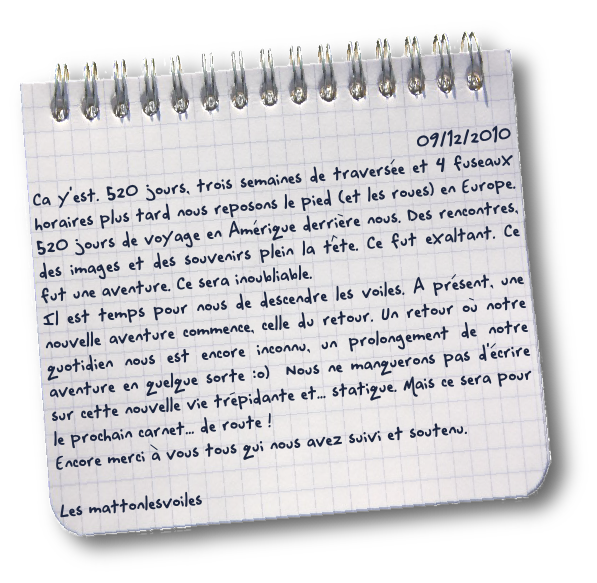 09/12/2010
Ca y'est. 520 jours, trois semaines de traversée et 4 fuseaux
horaires plus tard nous reposons le pied (et les roues) en Europe.
520 jours de voyage en Amérique derrière nous. Des rencontres,
des images et des souvenirs plein la tête. Ce fut exaltant. Ce
fut une aventure. Ce sera inoubliable.
Il est temps pour nous de descendre les voiles. A présent, une
nouvelle aventure commence, celle du retour. Un retour où notre
quotidien nous est encore inconnu, un prolongement de notre
aventure en quelque sorte :o) Nous ne manquerons pas d'écrire
sur cette nouvelle vie trépidante et... statique. Mais ce sera pour
le prochain carnet... de route !
Encore merci à vous tous qui nous avez suivi et soutenu.
Les mattonlesvoiles